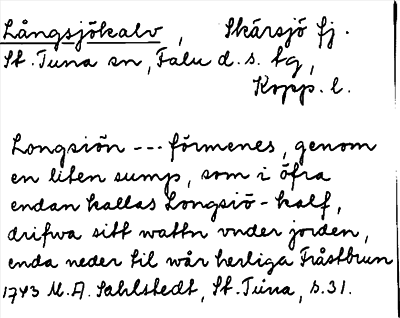 Långsjökalv, Skärsjö fj.
St. Tuna sn, Falu d. s. tg,
Kopp. l.
Longsiön --- förmenes, genom
en liten sump, som i öfra
endan kallas Longsiö-kalf,
drifwa sitt wattn vnder jorden,
enda neder til wår herliga Fråstbrun
1743 M. A. Sahlstedt, St. Tuna, s. 31.